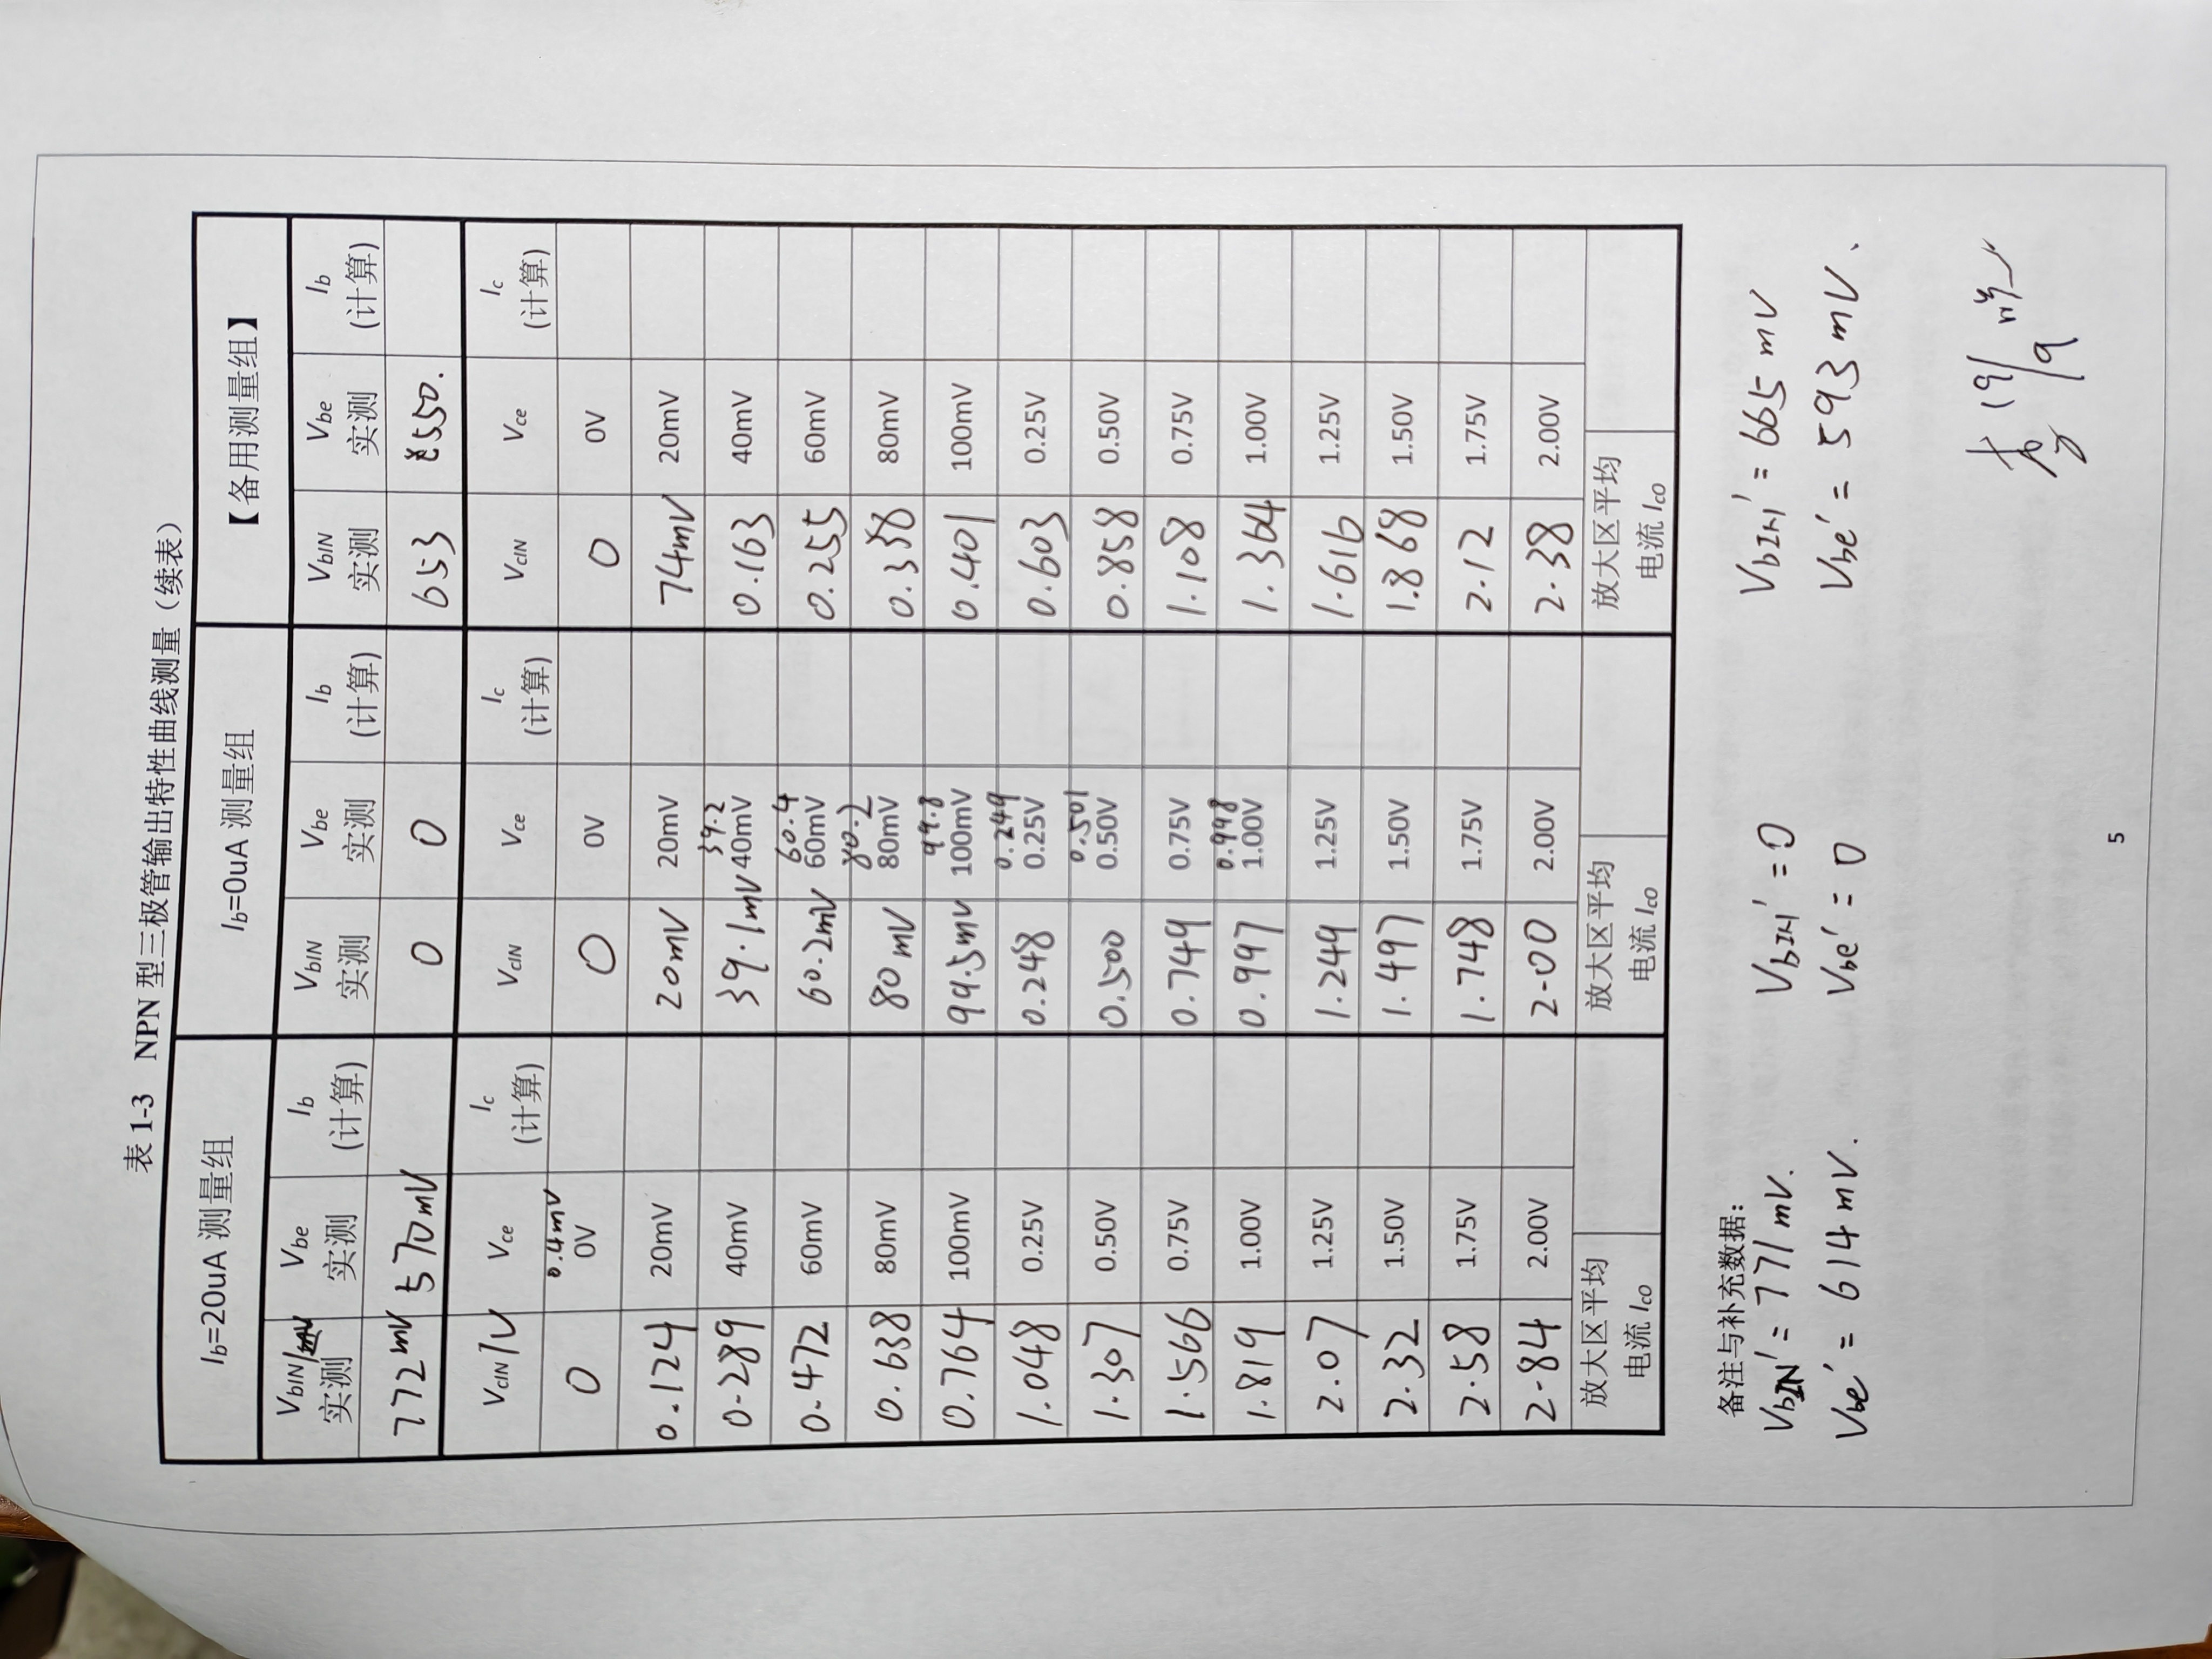 表 1-3 NPN 型三极管输出特性曲线测量（续表）
Ib=20uA 测量组 Ib=0uA 测量组 【备用测量组】
VbIN/ Vbe Ib VbIN Vbe Ib VbIN Vbe Ib
实测 实测 (计算) 实测 实测 (计算) 实测 实测 (计算)
772mV 570mV 0 0 653 550.
VcIN/V Vce Ic VcIN Vce Ic VcIN Vce Ic
(计算) (计算) (计算)
0.4mV
0 0V 0 0V 0 0V
0.124 20mV 20mV 20mV 74mV 20mV
39.2
0.289 40mV 39.1mV 40mV 0.163 40mV
60.4
0.472 60mV 60.2mV 60mV 0.255 60mV
80.2
0.638 80mV 80mV 80mV 0.338 80mV
99.8
0.764 100mV 99.5mV 100mV 0.401 100mV
0.249
1.048 0.25V 0.248 0.25V 0.603 0.25V
0.501
1.307 0.50V 0.500 0.50V 0.858 0.50V
1.566 0.75V 0.749 0.75V 1.108 0.75V
0.998
1.819 1.00V 0.997 1.00V 1.364 1.00V
2.07 1.25V 1.249 1.25V 1.616 1.25V
2.32 1.50V 1.497 1.50V 1.868 1.50V
2.58 1.75V 1.748 1.75V 2.12 1.75V
2.84 2.00V 2.00 2.00V 2.38 2.00V
放大区平均 放大区平均 放大区平均
电流 Ico 电流 Ico 电流 Ico
备注与补充数据：
VbIN' = 771 mV. VbIN' = 0 VbIN' = 665 mV
Vbe' = 614 mV. Vbe' = 0 Vbe' = 593 mV.
19/9
5